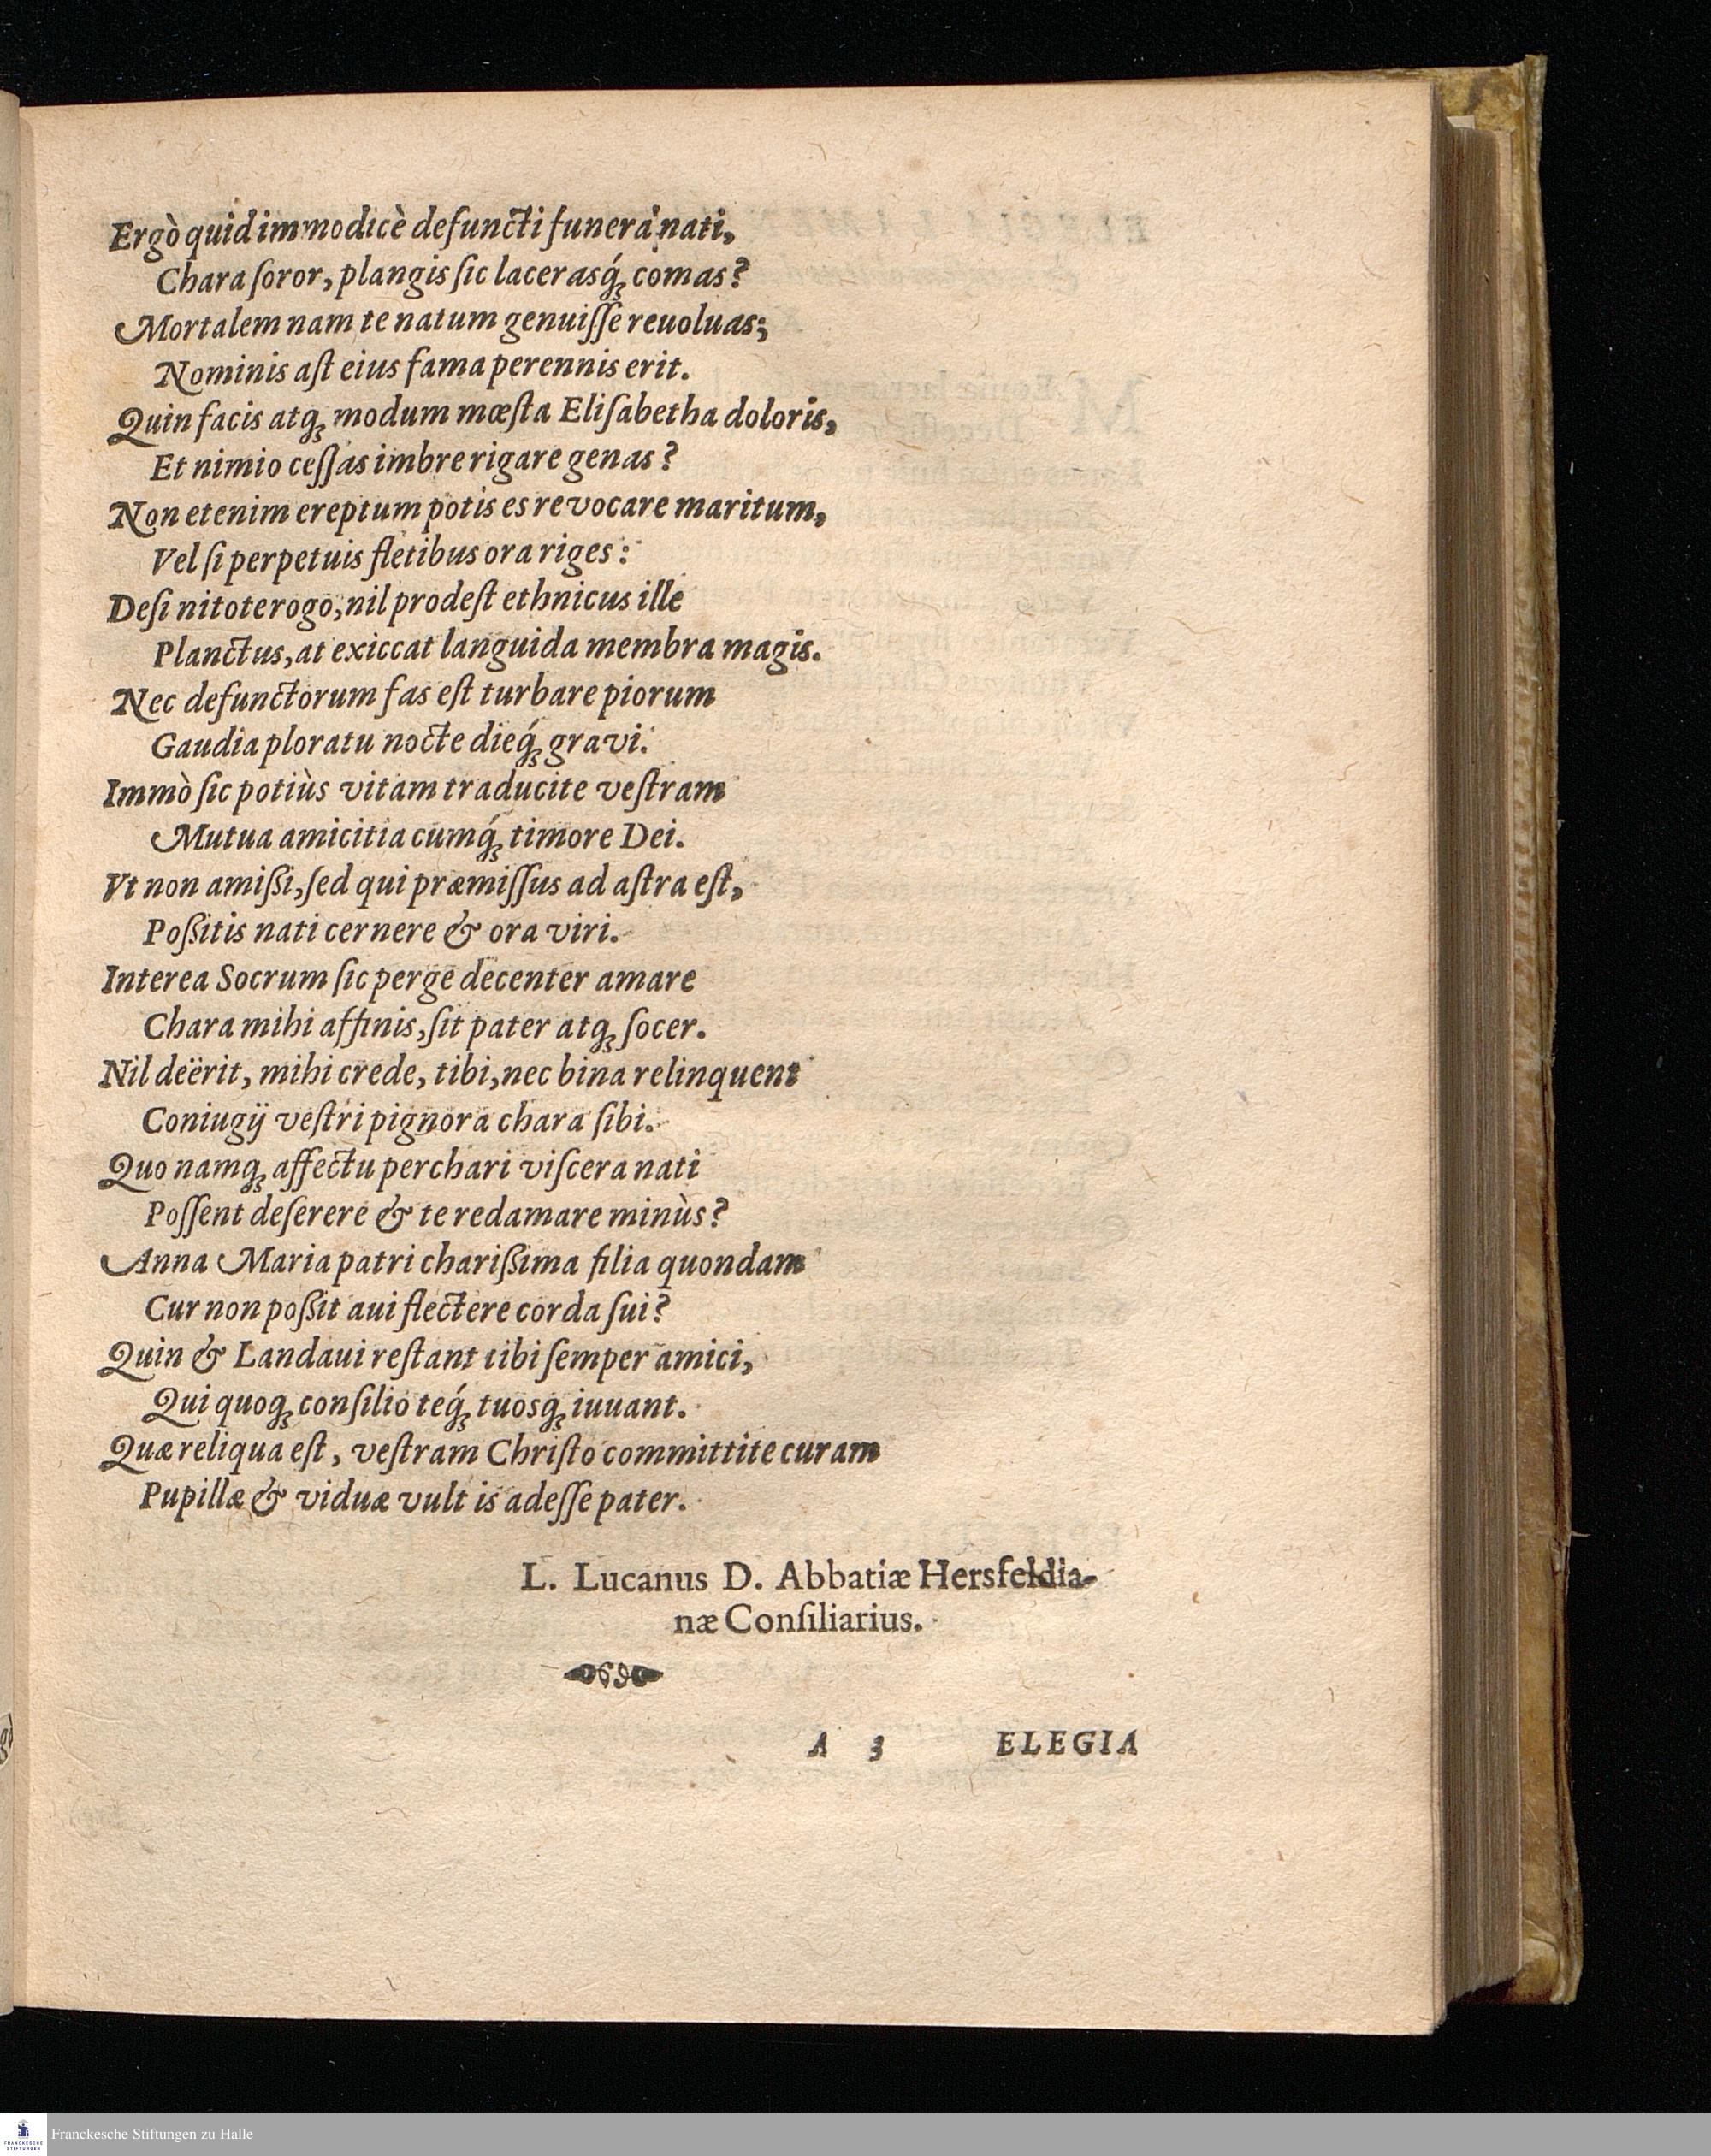 Ergò quid immodicè defuncti funera nati,
Chara ſoror, plangis ſic lacerasq́; comas?
Mortalem nam te natum genuiſſe reuoluas;
Nominis aſt eius fama perennis erit.
Quin facis atq; modum mœſta Eliſabetha doloris,
Et nimio ceſſas imbre rigare genas?
Non etenim ereptum potis es revocare maritum,
Vel ſi perpetuis fletibus ora riges:
Deſinito te rogo, nil prodeſt ethnicus ille
Planctus, at exiccat languida membra magis.
Nec defunctorum fas eſt turbare piorum
Gaudia ploratu nocte dieq́; gravi.
Immò ſic potiùs vitam traducite veſtram
Mutua amicitia cumq́; timore Dei.
Vt non amißi, ſed qui præmiſſus ad aſtra eſt,
Poßitis nati cernere & ora viri.
Interea Socrum ſic perge decenter amare
Chara mihi affinis, ſit pater atq; ſocer.
Nil deërit, mihi crede, tibi, nec bina relinquent
Coniugij veſtri pignora chara ſibi.
Quo namq; affectu perchari viſcera nati
Poſſent deſerere & te redamare minùs?
Anna Maria patri charißima filia quondam
Cur non poßit aui flectere corda ſui?
Quin & Landaui reſtant tibi ſemper amici,
Qui quoq; conſilio teq́; tuosq; iuuant.
Quæ reliqua eſt, veſtram Chriſto committite curam
Pupillæ & viduæ vult is adeſſe pater.
L. Lucanus D. Abbatiæ Hersfeldia-
næ Conſiliarius.
A 3 ELEGIA
FRANCKESCHE
STIFTUNGEN
Franckesche Stiftungen zu Halle